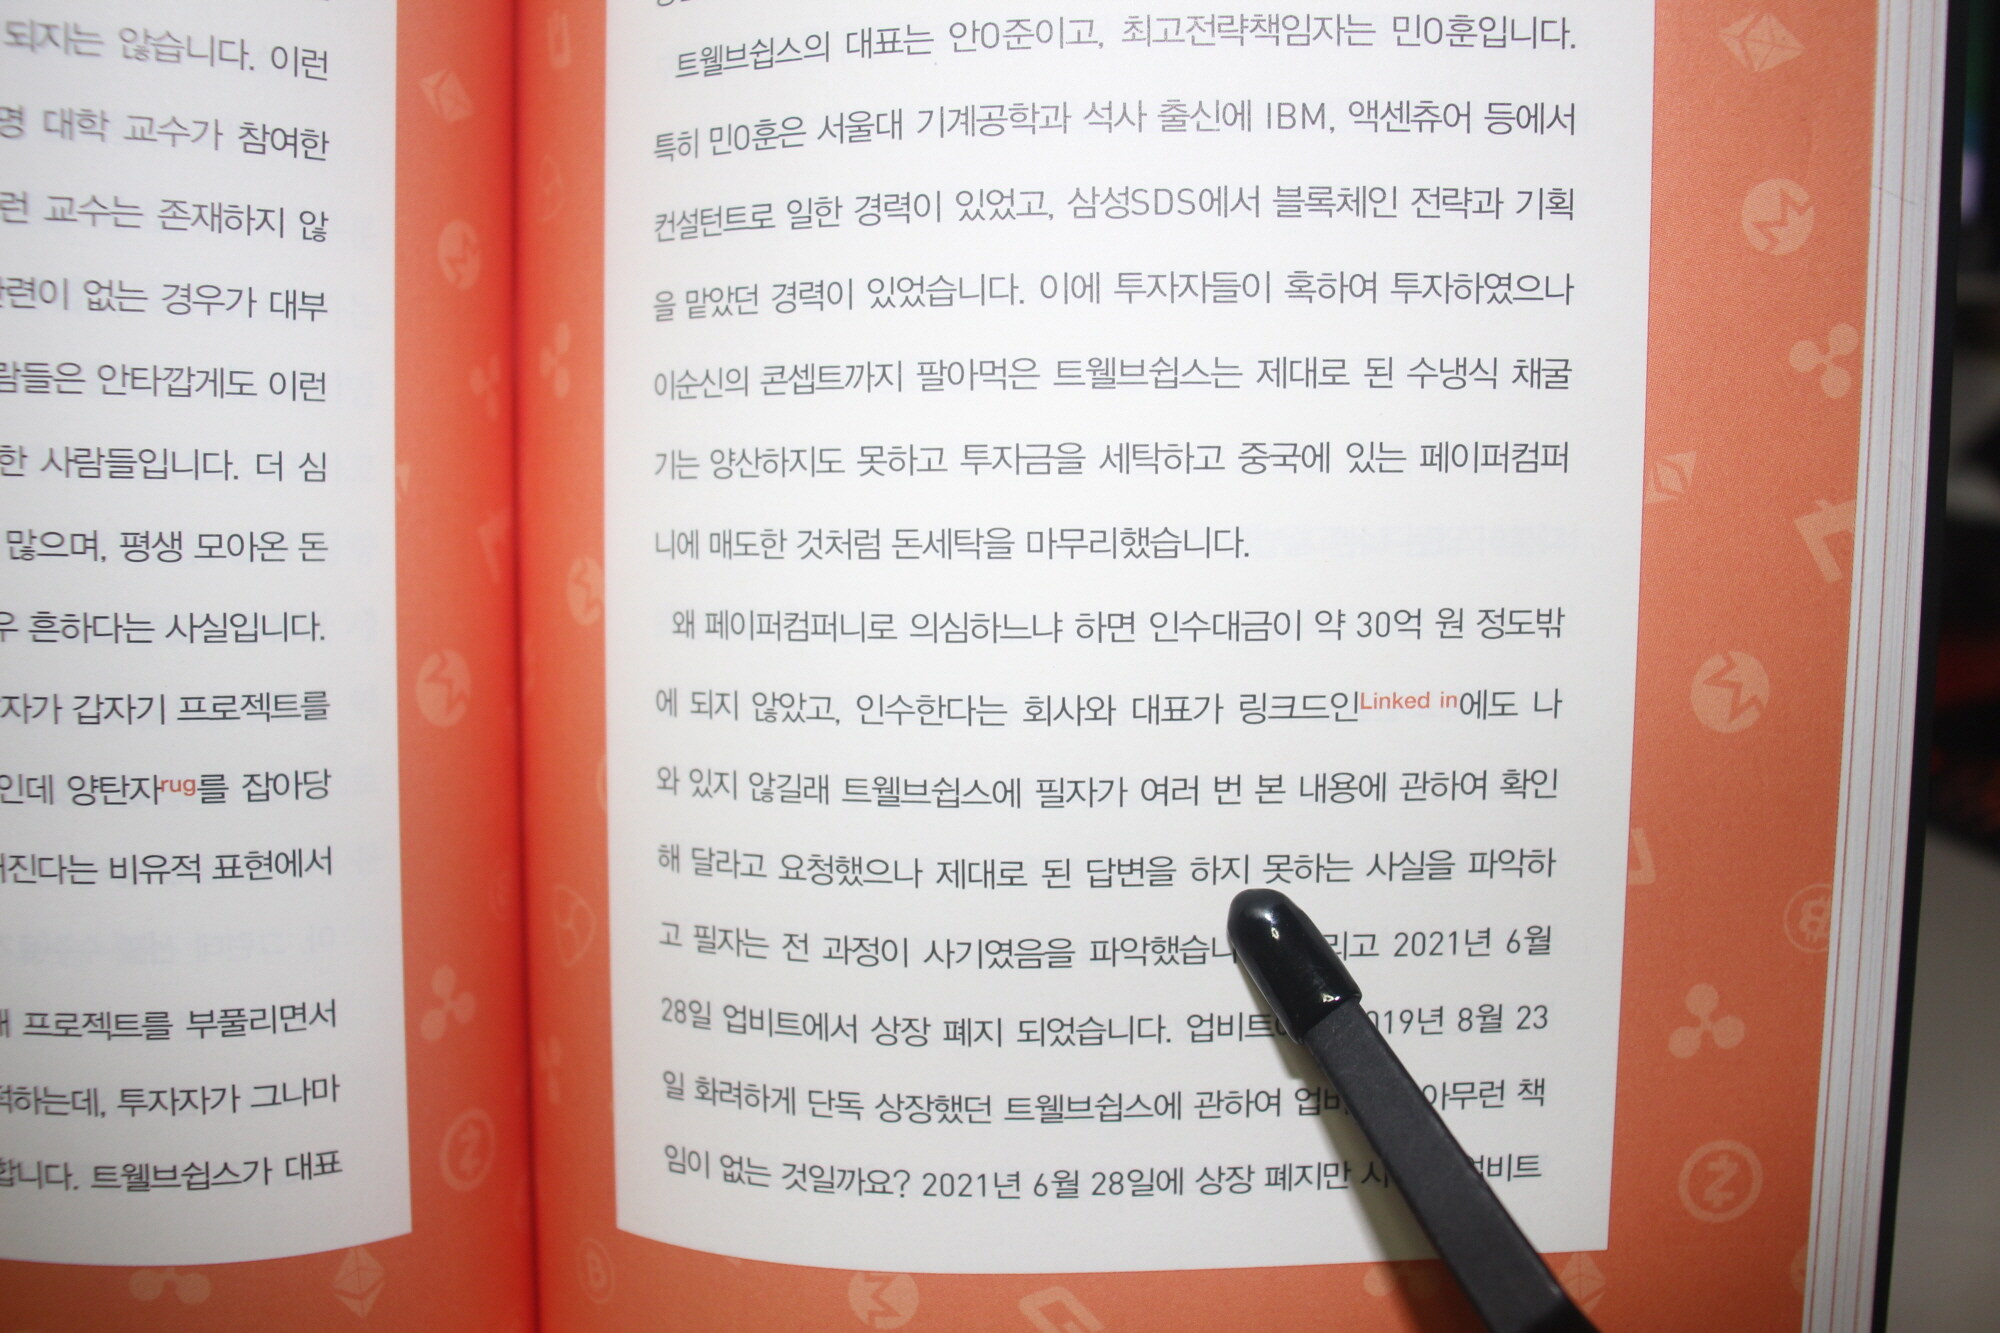 되자는 않습니다. 이런
명 대학 교수가 참여한
런 교수는 존재하지 않
련이 없는 경우가 대부
람들은 안타깝게도 이런
한 사람들입니다. 더 심
많으며, 평생 모아온 돈
우 흔하다는 사실입니다.
자가 갑자기 프로젝트를
인데 양탄자rug를 잡아당
진다는 비유적 표현에서
프로젝트를 부풀리면서
적하는데, 투자자가 그나마
합니다. 트웰브쉽스가 대표
트웰브쉽스의 대표는 안0준이고, 최고전략책임자는 민0훈입니다.
특히 민0훈은 서울대 기계공학과 석사 출신에 IBM, 액센츄어 등에서
컨설턴트로 일한 경력이 있었고, 삼성SDS에서 블록체인 전략과 기획
을 맡았던 경력이 있었습니다. 이에 투자자들이 혹하여 투자하였으나
이순신의 콘셉트까지 팔아먹은 트웰브쉽스는 제대로 된 수냉식 채굴
기는 양산하지도 못하고 투자금을 세탁하고 중국에 있는 페이퍼컴퍼
니에 매도한 것처럼 돈세탁을 마무리했습니다.
왜 페이퍼컴퍼니로 의심하느냐 하면 인수대금이 약 30억 원 정도밖
에 되지 않았고, 인수한다는 회사와 대표가 링크드인Linked in에도 나
와 있지 않길래 트웰브쉽스에 필자가 여러 번 본 내용에 관하여 확인
해 달라고 요청했으나 제대로 된 답변을 하지 못하는 사실을 파악하
고 필자는 전 과정이 사기였음을 파악했습니 리고 2021년 6월
28일 업비트에서 상장 폐지 되었습니다. 업비트 019년 8월 23
일 화려하게 단독 상장했던 트웰브쉽스에 관하여 업비 아무런 책
임이 없는 것일까요? 2021년 6월 28일에 상장 폐지만 시 업비트